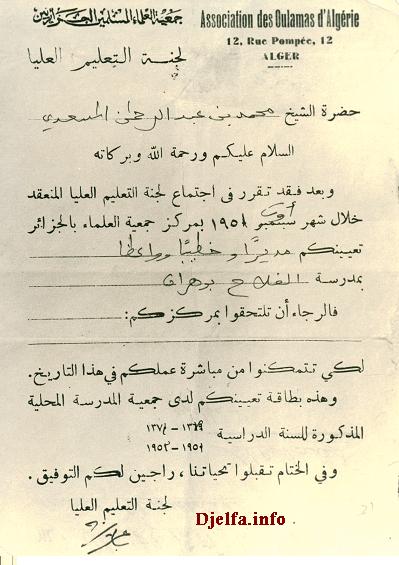 جمعية العلماء المسلمين الجزائريين
Association des Oulamas d'Algérie
12, Rue Pompée, 12
ALGER
لجنة التعليم العليا
حضرة الشيخ محمد بن عبد الرحمن المسعدي
السلام عليكم ورحمة الله وبركاته
وبعد فقد تقرر في اجتماع لجنة التعليم العليا المنعقد
خلال شهر سبتمبر أوت ١٩٥١ بمركز جمعية العلماء بالجزائر
تعيينكم مديرًا وخطيبًا وواعظا
بمدرسة الفلاح بوهران
فالرجاء أن تلتحقوا بمركزكم:
لكي تتمكنوا من مباشرة عملكم في هذا التاريخ.
وهذه بطاقة تعيينكم لدى جمعية المدرسة المحلية
المذكورة للسنة الدراسية
١٣٧١ -
١٩٥١ - ١٩٥٢
وفي الختام تقبلوا تحياتنا، راجين لكم التوفيق.
لجنة التعليم العليا
Djelfa.info